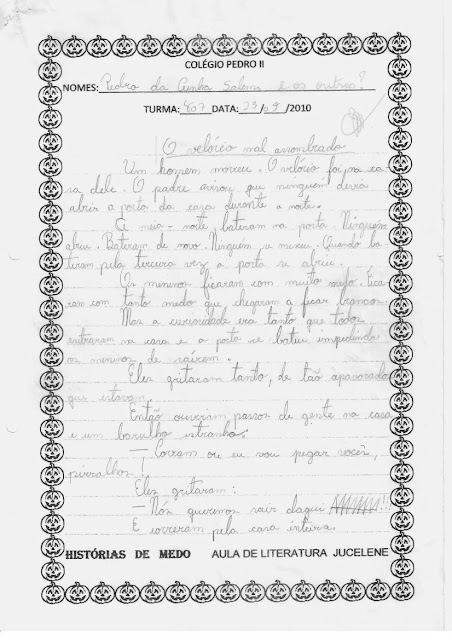 COLÉGIO PEDRO II
NOMES: Pedro da Cunha Salem e os outros?
TURMA: 407 DATA: 23/09/2010
O velório mal assombrado
Um homem morreu. O velório foi na ca-
sa dele. O padre avisou que ninguém devia
abrir a porta da casa durante a noite.
À meia-noite bateram na porta. Ninguém
abriu. Bateram de novo. Ninguém se mexeu. Quando ba-
teram pela terceira vez a porta se abriu.
Os meninos ficaram com muito medo. Fica-
ram com tanto medo que chegaram a ficar brancos.
Mas a curiosidade era tanta que todos
entraram na casa e a porta se bateu impedindo
os meninos de saírem.
Eles gritaram tanto, de tão apavorados
que estavam.
Então ouviram passos de gente na casa
e um barulho estranho.
— Corram ou eu vou pegar vocês,
pirralhos!
Eles gritaram:
— Nós queremos sair daqui
E correram pela casa inteira.
HISTÓRIAS DE MEDO AULA DE LITERATURA JUCELENE